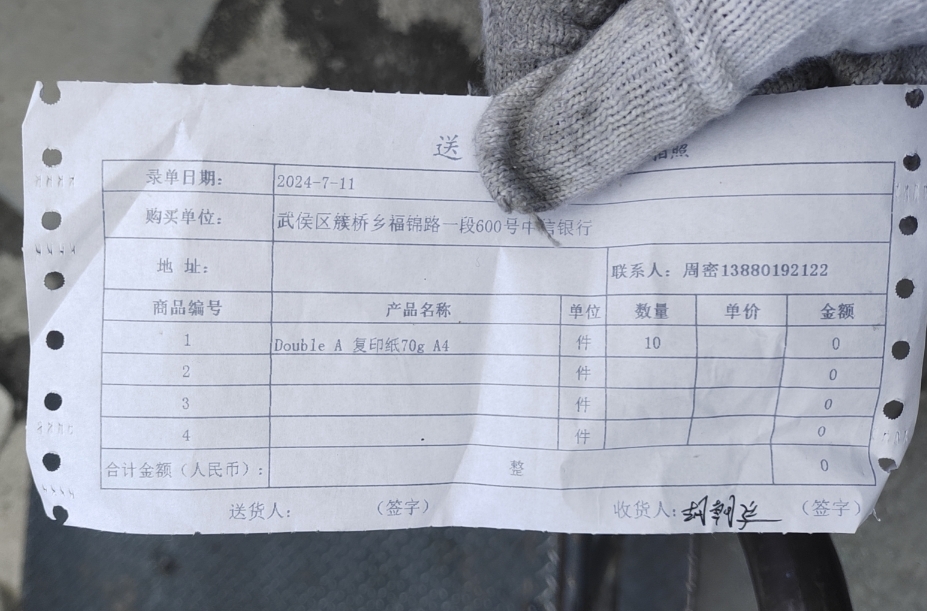 送 拍照
录单日期： 2024-7-11
购买单位： 武侯区簇桥乡福锦路一段600号中信银行
地 址： 联系人：周密13880192122
商品编号 产品名称 单位 数量 单价 金额
1 Double A 复印纸70g A4 件 10 0
2 件 0
3 件 0
4 件 0
合计金额（人民币）： 整 0
送货人： （签字） 收货人： （签字）